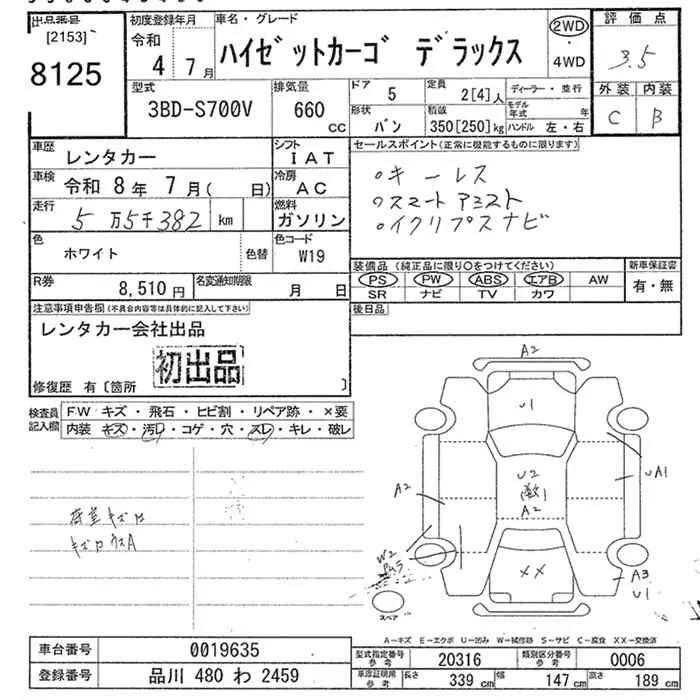 出品番号
[2153]
8125
初度登録年月
令和 4年 7月
車名・グレード
ハイゼットカーゴ デラックス
2WD
・
4WD
評価点
3.5
外装 内装
C B
型式
3BD-S700V
排気量
660 cc
ドア
5
定員
2[4]人
形状
バン
積載
350[250]kg
ディーラー・並行
モデル年式 年
ハンドル 左・右
車歴
レンタカー
シフト
IAT
車検
令和 8年 7月( 日)
冷房
AC
走行
5万5千382 km
燃料
ガソリン
色
ホワイト
色替
色コード
W19
R券
8,510円
名変通知期限
月 日
セールスポイント(正常に機能するものに限ります)
○キーレス
○スマートアシスト
○イクリプスナビ
装備品(純正品に限り○をつけてください)
PS PW ABS エアB AW
SR ナビ TV カワ
新車保証書
有・無
後日品
注意事項申告欄(不具合内容等は具体的に記入して下さい)
レンタカー会社出品
初出品
修復歴 有〔箇所 〕
検査員記入欄
FW キズ・飛石・ヒビ割・リペア跡・×要
内装 キズ・汚レ・コゲ・穴・スレ・キレ・破レ
荷室キズ
A2
U1
U2
A2
A2
UA1
W2
XX
A3
U1
スペア
A-キズ E-エクボ U-凹み W-補修跡 S-サビ C-腐食 XX-交換済
車台番号 0019635
登録番号 品川 480 わ 2459
型式指定番号 参考 20316
類別区分番号 参考 0006
車庫証明用 参考 長さ 339 cm 幅 147 cm 高さ 189 cm